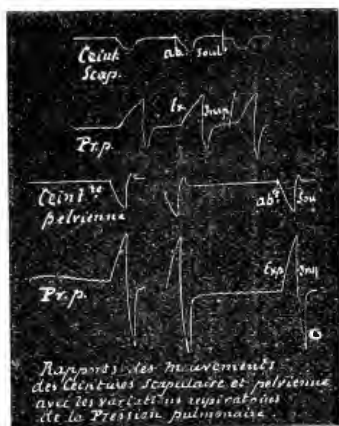 Ceint.
Scap.
ab. Soul.
Pr.p.
Ex. Insp.
Ceint.re
pelvienne
ab.t Sou
Pr.p.
Exp. Insp
Rapports des mouvements
des Ceintures scapulaire et pelvienne
avec les variations respiratoires
de la Pression pulmonaire.